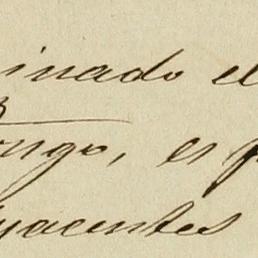 inado el
ongo, es p
yacentes